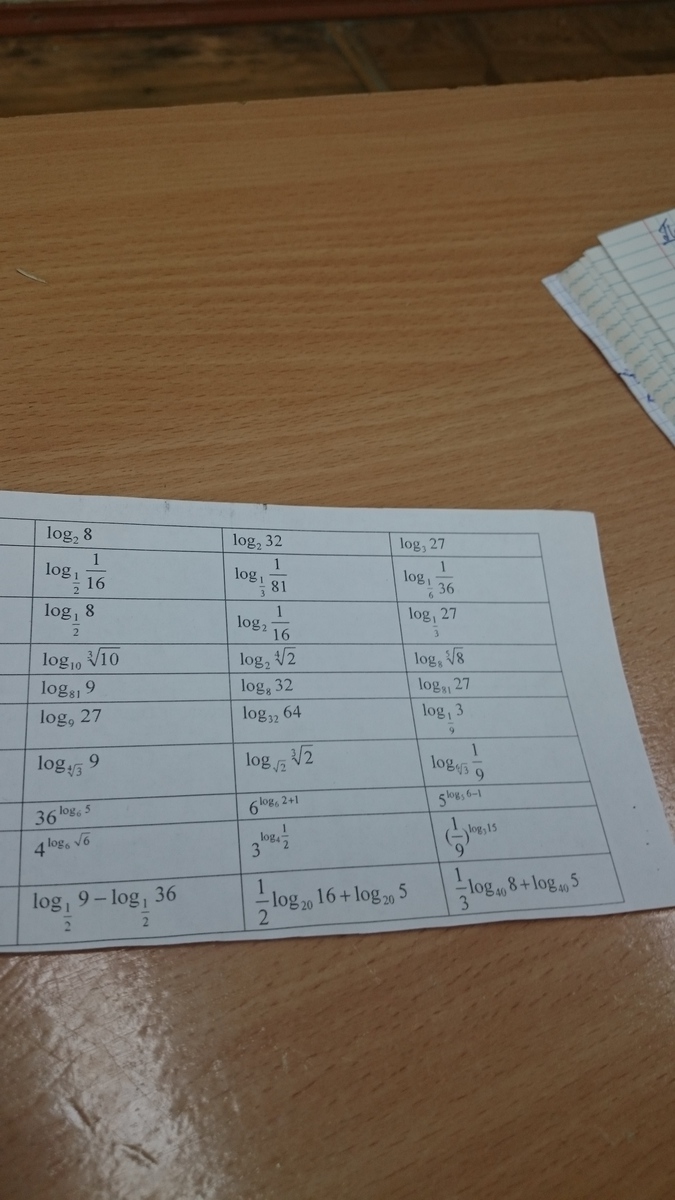 log₂ 8 log₂ 32 log₃ 27
log_{1/2} 1/16 log_{1/3} 1/81 log_{1/6} 1/36
log_{1/2} 8 log₂ 1/16 log_{1/3} 27
log₁₀ ∛10 log₂ ∜2 log₈ ⁵√8
log₈₁ 9 log₈ 32 log₈₁ 27
log₉ 27 log₃₂ 64 log_{1/9} 3
log_{∜3} 9 log_{√2} ∛2 log_{⁶√3} 1/9
36^{log₆ 5} 6^{log₆ 2+1} 5^{log₅ 6−1}
4^{log₆ √6} 3^{log₄ 1/2} (1/9)^{log₃ 15}
log_{1/2} 9 − log_{1/2} 36 1/2 log₂₀ 16 + log₂₀ 5 1/3 log₄₀ 8 + log₄₀ 5